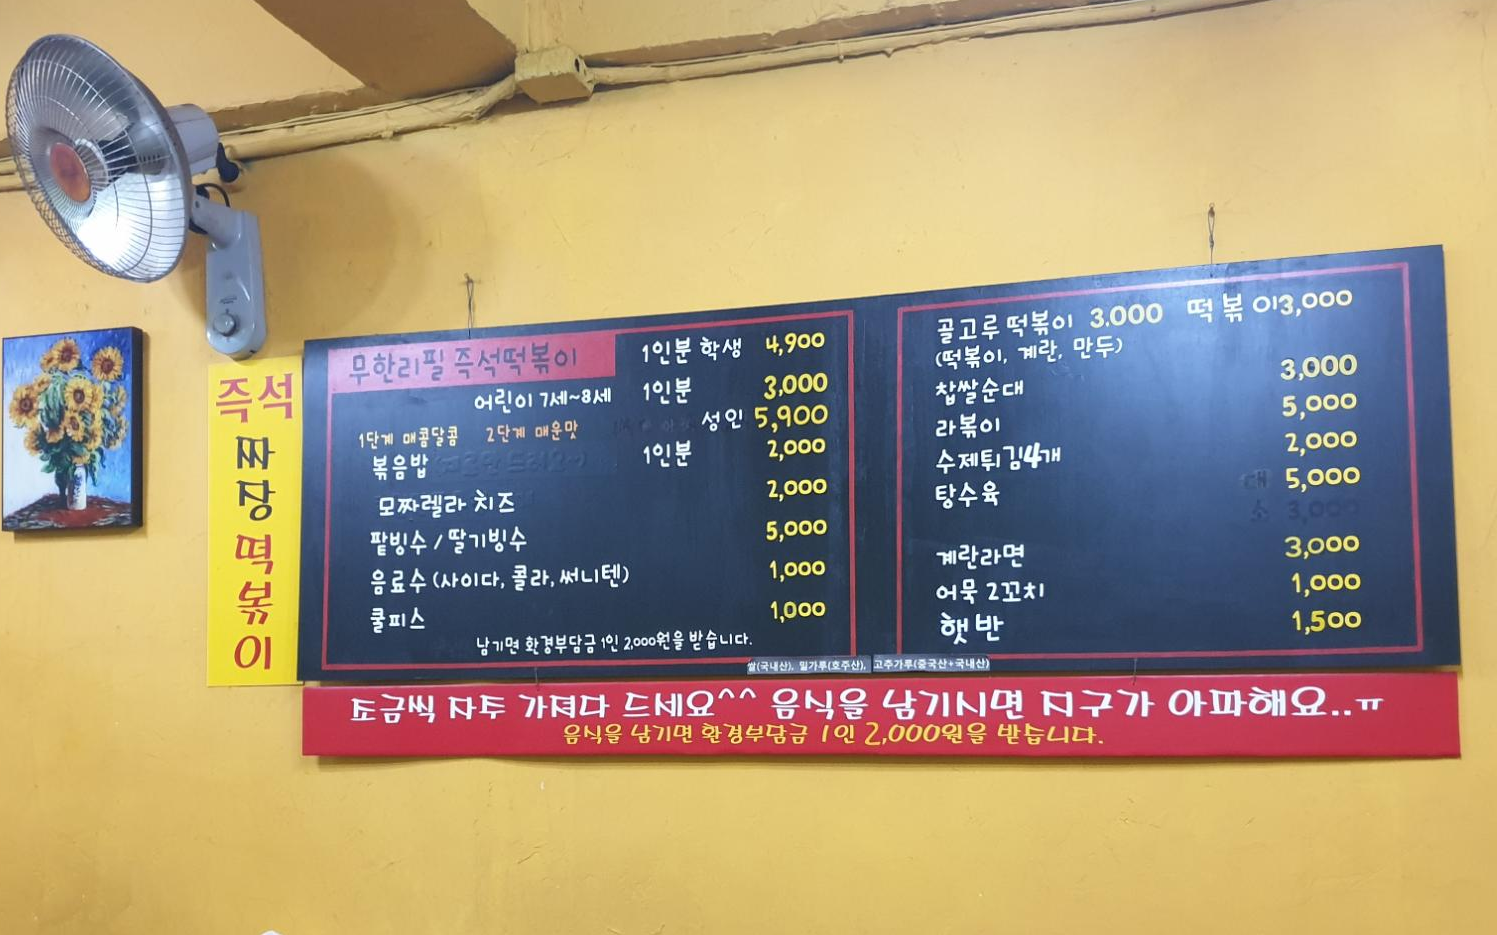 즉석
짜장
떡볶이
무한리필 즉석떡볶이 1인분 학생 4,900
어린이 7세~8세 1인분 3,000
성인 5,900
1단계 매콤달콤 2단계 매운맛
볶음밥 1인분 2,000
모짜렐라 치즈 2,000
팥빙수 / 딸기빙수 5,000
음료수 (사이다, 콜라, 써니텐) 1,000
쿨피스 1,000
남기면 환경부담금 1인 2,000원을 받습니다.
골고루 떡볶이 3.000 떡볶이 3,000
(떡볶이, 계란, 만두)
찹쌀순대 3,000
라볶이 5,000
수제튀김4개 2,000
탕수육 대 5,000
소 3,000
계란라면 3,000
어묵 2꼬치 1,000
햇반 1,500
쌀(국내산), 밀가루(호주산), 고추가루(중국산+국내산)
조금씩 자주 가져다 드세요^^ 음식을 남기시면 지구가 아파해요..ㅠ
음식을 남기면 환경부담금 1인 2,000원을 받습니다.